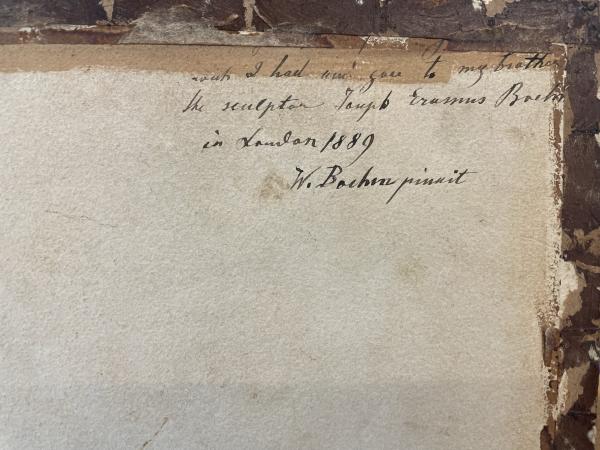 I had to my brother
the sculptor Joseph Erasmus Boehm
in London 1889
W. Boehm pinxit